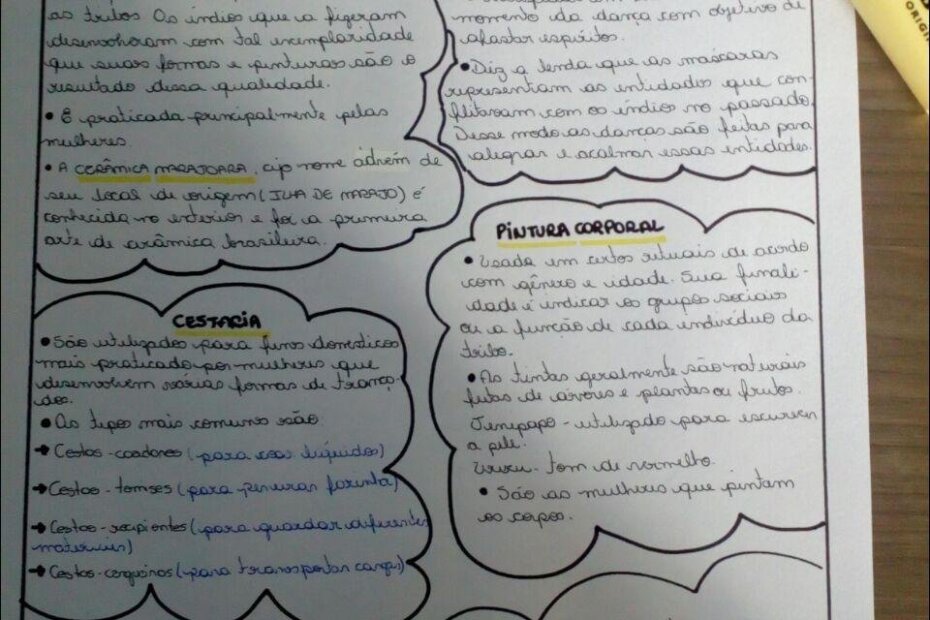 as tribos Os índios que a fizeram
desenvolveram com tal exemplaridade
que suas formas e pinturas são o
resultado dessa qualidade.
• É praticada principalmente pelas
mulheres.
• A CERÂMICA MARAJOARA, cujo nome advém de
seu local de origem (ILHA DE MARAJÓ) é
conhecida no exterior e foi a primeira
arte de cerâmica brasileira.
CESTARIA
• São utilizados para funs domésticos
mais praticado por mulheres que
desenvolvem várias formas de trança-
dos.
• Os tipos mais comuns são
→ Cestos-coadores (para coar líquidos)
→ Cestos-tamises (para peneirar farinha)
→ Cestos-recipientes (para guardar diferentes
materiais)
→ Cestos-cargueiros (para transportar cargas)
momento da dança com objetivo de
afastar espíritos.
• Diz a lenda que as máscaras
representam as entidades que con-
flitavam com os índios no passado.
Desse modo as danças são feitas para
alegrar e acalmar essas entidades.
PINTURA CORPORAL
• Usada em certos rituais de acordo
com gênero e idade. Sua finali-
dade é indicar os grupos sociais
ou a função de cada indivíduo da
tribo.
• As tintas geralmente são naturais
feitas de árvores e plantas ou frutos.
Jenipapo - utilizado para escurecer
a pele.
Urucu - tom de vermelho.
• São as mulheres que pintam
os corpos.